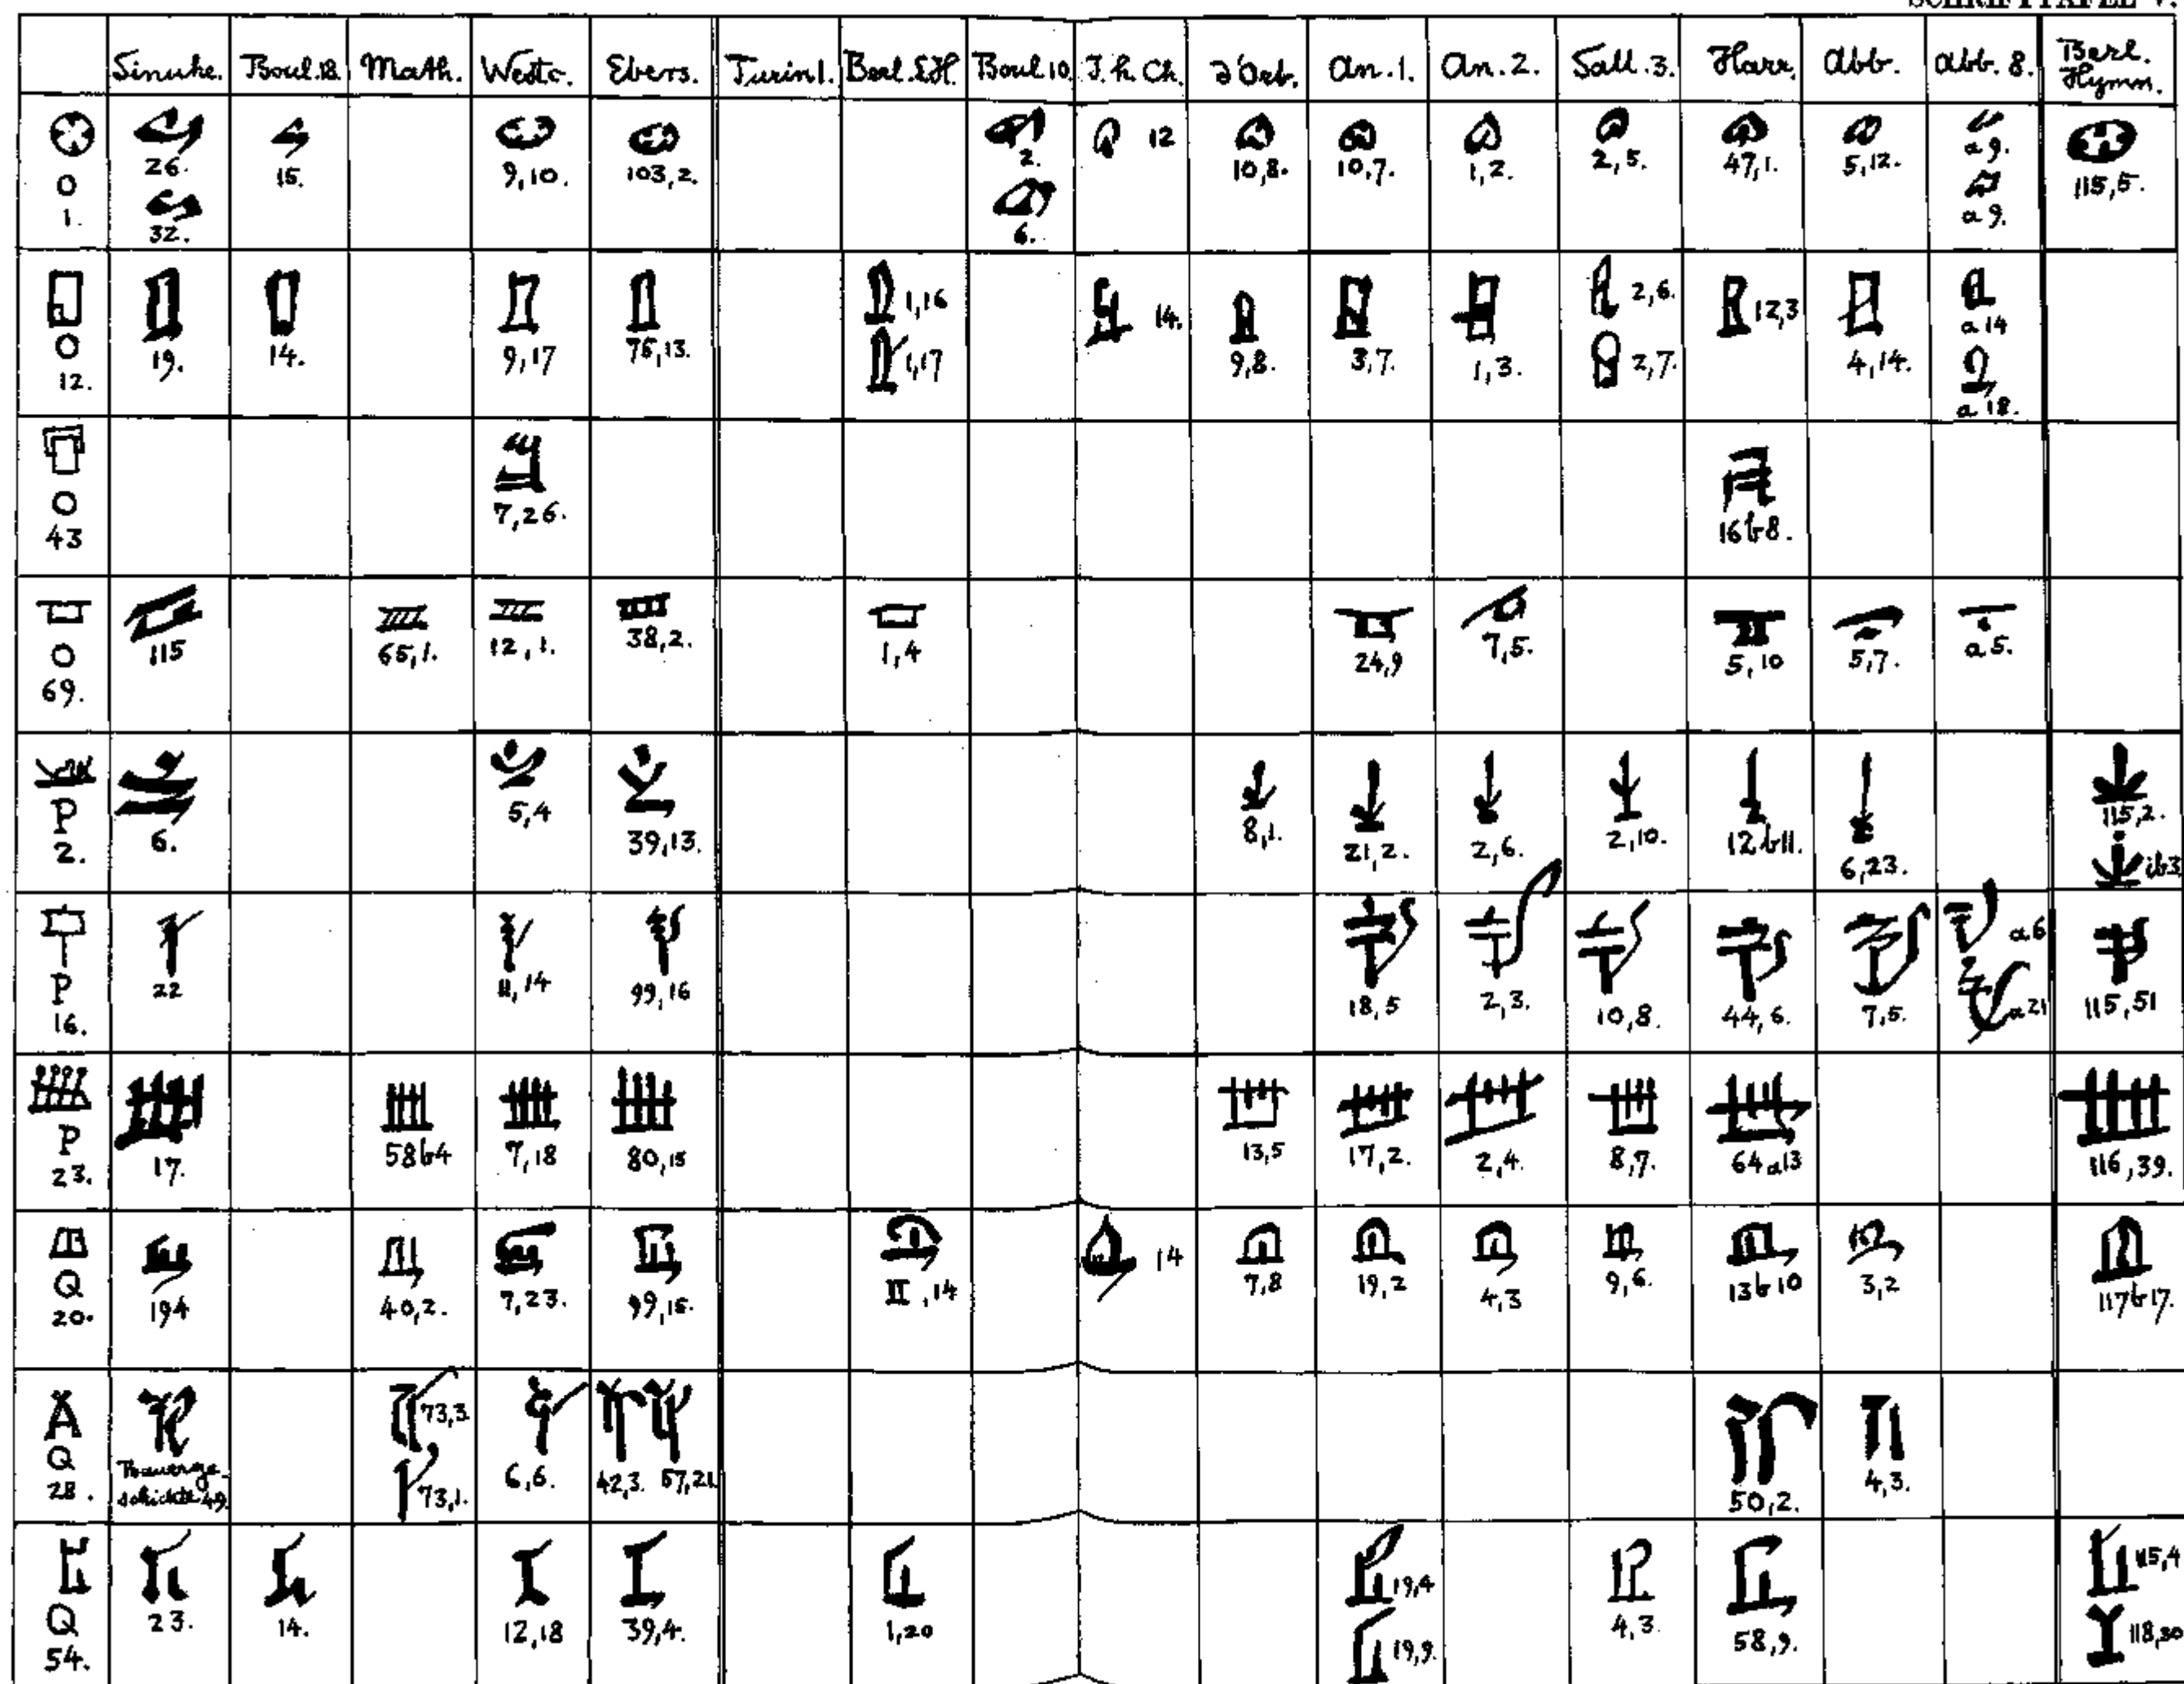 SCHRIFTTAFEL V.
Sinuhe. Boul.18. Math. Westc. Ebers. Turin 1. Berl. Boul 10. J. h. Ch. d'Orb. An. 1. An. 2. Sall. 3. Harr. Abb. Abb. 8. Berl. Hymn.
O 1. 26. 32. 15. 9,10. 103,2. 2. 6. 12 10,8. 10,7. 1,2. 2,5. 47,1. 5,12. a 9. a 9. 115,5.
O 12. 19. 14. 9,17 75,13. 1,16 1,17 14. 9,8. 3,7. 1,3. 2,6. 2,7. 12,3 4,14. a 14 a 18.
O 43 7,26. 16 b 8.
O 69. 115 65,1. 12,1. 38,2. 1,4 24,9 7,5. 5,10 5,7. a 5.
P 2. 6. 5,4 39,13. 8,1. 21,2. 2,6. 2,10. 12 b 11. 6,23. 115,2. ib 3
P 16. 22 11,14 99,16 18,5 2,3. 10,8. 44,6. 7,5. a 6 a 21 115,51
P 23. 17. 58 b 4 7,18 80,15 13,5 17,2. 2,4. 8,7. 64 a 13 116,39.
Q 20. 194 40,2. 7,23. 99,15. II,14 14 7,8 19,2 4,3 9,6. 13 b 10 3,2 117 b 17.
Q 28. 49. 73,3. 73,1. 6,6. 42,3. 57,21. 50,2. 4,3.
Q 54. 23. 14. 12,18 39,4. 1,20 19,4 19,9. 4,3. 58,9. 115,4 118,30